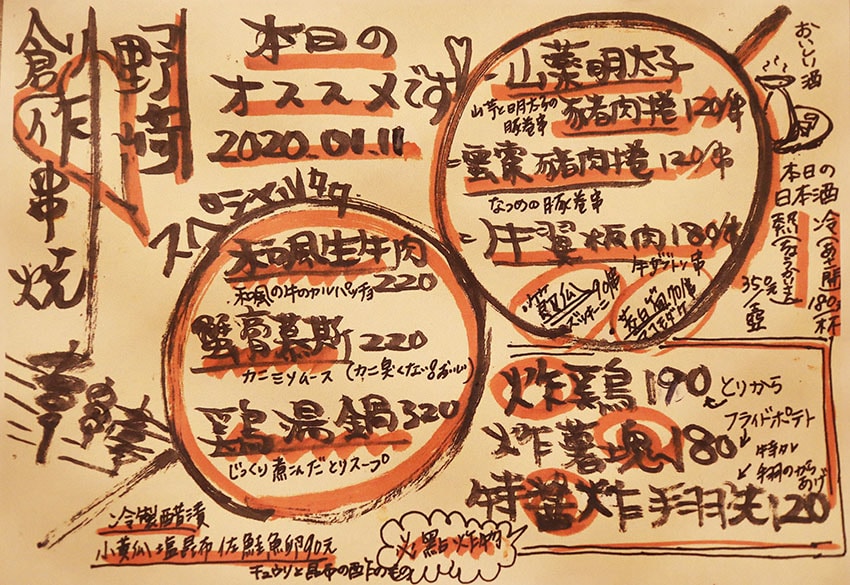 創作串燒
野崎
本日の
オススメです
2020.01.11
おいしい酒
山藥明太子
山芋と明太子の
豚巻串
豬肉捲 120/串
蜜棗豬肉捲 120/串
なつめの豚巻串
牛翼板肉 180/串
牛ザブトン串
90/串
ズッキーニ
70/串
本日の
日本酒
冷(あ開)180/杯
350元/壺
スペシャル
和風生牛肉
和風の牛のカルパッチョ 220
蟹膏慕斯 220
カニミソムース(カニ臭くない。おいしい)
鶏湯鍋 320
じっくり煮こんだとりスープ
炸鶏 190
とりから
炸薯塊 180
フライドポテト
特醬炸手羽先 120
手羽のからあげ
冷製醋漬
小黄瓜塩昆布佐鮭魚卵90元
キュウリと昆布の酢のもの
必點炸物